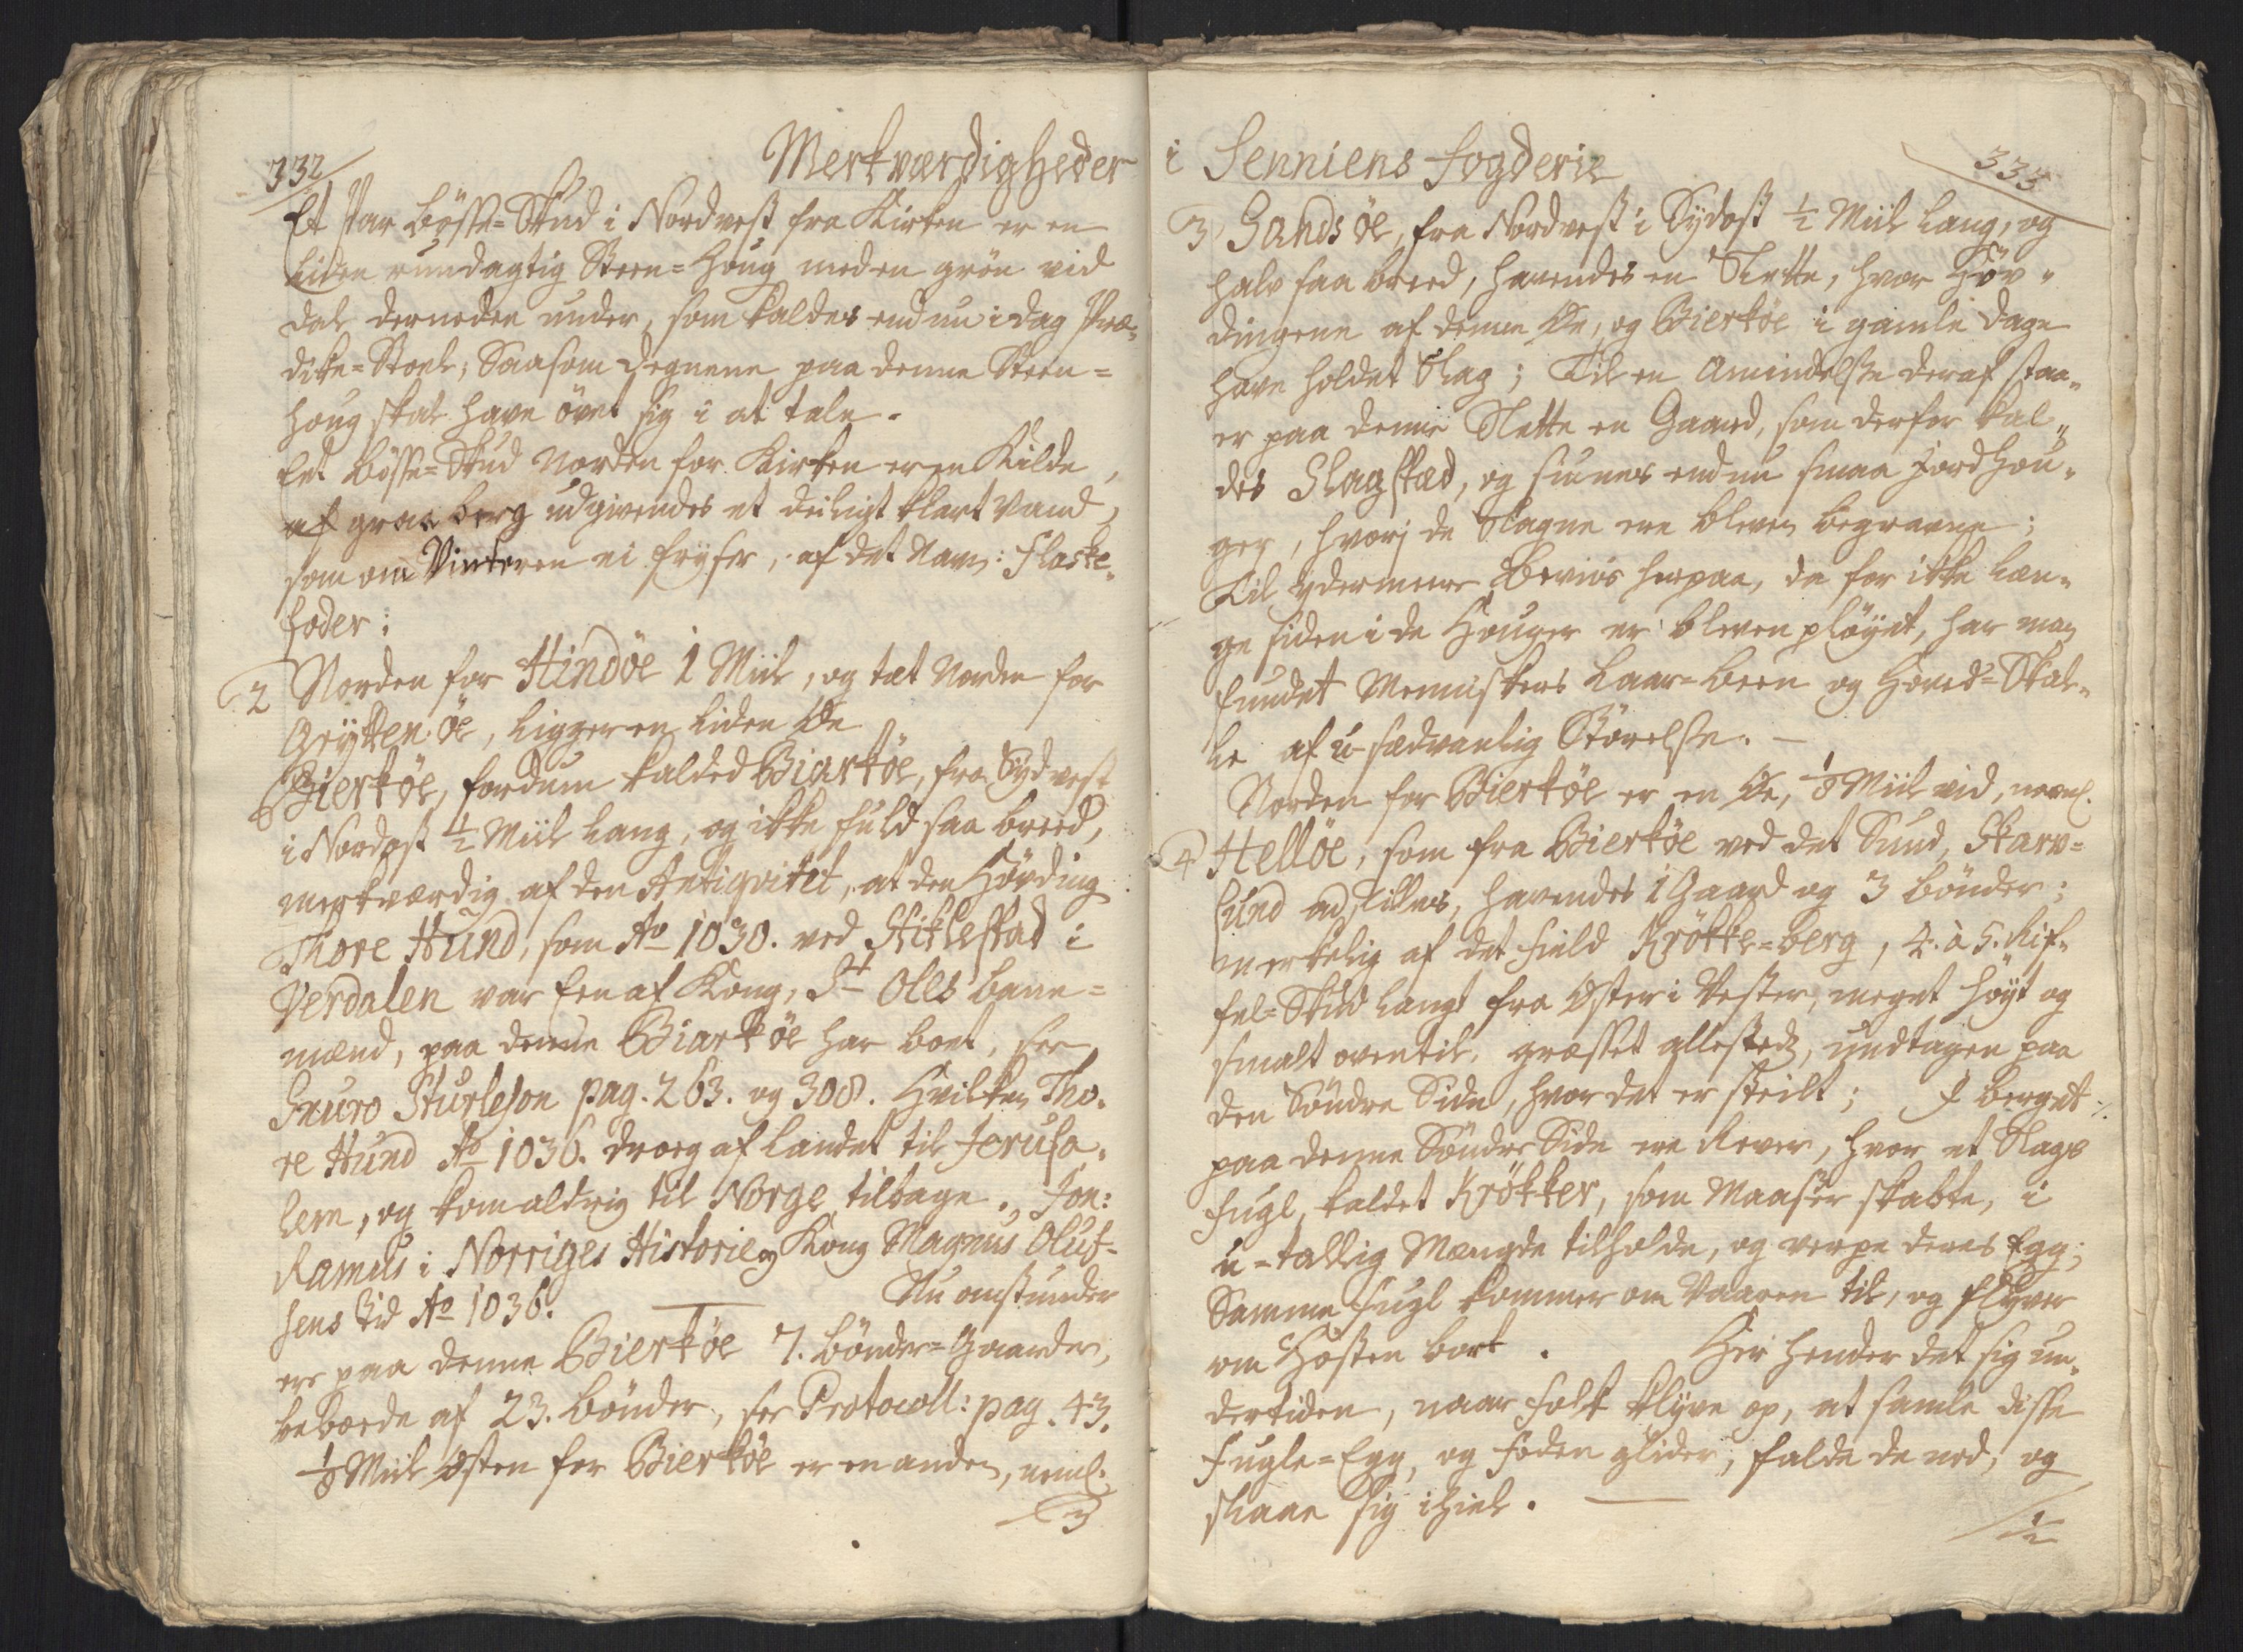 332
Merkværdigheder
Et Par Bösse=Skud i Nordvest fra Kirken er en
liden rundagtig Steen=Houg med en grön vid
Dal derneden under, som kaldes end nu i dag Præ-
dike=Stoel; Saasom Degnene paa denne Steen=
houg skal have övet sig i at tale.
Eet Bösse=Skud Norden for Kirken er en Kilde,
af graa berg udgivendes et deiligt klart Vand,
som om Vinteren ei fryser, af det Navn: Flaske-
foder:
2 Norden for Hindöe 1 Miil, og tæt Norden for
Grytten öe, ligger en liden Øe
Bierköe, fordum kalded Biarköe, fra Sydvest
i Nordost ½ Miil lang, og ikke fuld saa breed,
merkværdig af den Antiqvitet, at den Hövding
Thore Hund, som Ao 1030. ved Stiklestad i
Verdalen var Een af Kong, St Oles bane=
mænd, paa denne Biarköe har boet, see
Snuro Sturleson pag. 263. og 308. Hvilken Tho-
re Hund Ao 1036. droeg af Landet til Jerusa-
lem, og kom aldrig til Norge tilbage. Jon:
Ramus i Norriges Historie og Kong Magnus Oluf-
sens Tid Ao 1036. — Nu omstunder
ere paa denne Bierköe 7. bönder=Gaarder,
beboede af 23. bönder, see Protocoll: pag. 43.
⅛ Miil Østen for Bierköe er en anden, neml.
3
i Senniens Fogderie
333
3 Sands öe, fra Nordvest i Sydost ½ Miil lang, og
halv saa breed, havendes en Slette, hvor Höv-
dingene af denne Øe, og Bierköe i gamle Dage
have holdet Slag; Til en Amindelse deraf staa-
er paa denne Slette en Gaard, som derfor kal-
des Slagstad, og siunes endnu smaa Jordhou-
ger, hvorj de Slagne ere bleven begravne;
Til ydermeere Beviis herpaa, da for ikke læn-
ge siden i de Houger er bleven plöyet, har man
fundet Menniskers Laar=been og Hoved=Skal-
le af u-sædvanlig Störelse. —
Norden for Bierköe er en Øe, ⅛ Miil vid, nevnl.
4 Hellöe, som fra Bierköe ved det Sund, Skarv=
sund adskilles, havendes 1 Gaard og 3 bönder;
merkelig af det Field Krökke=berg, 4. à 5. Rif-
fel=Skud langt fra Øster i Vester, meget höyt og
smalt oventil, græsset allested, undtagen paa
den Söndre Side, hvor det er steilt; I berget
paa denne Söndre Side ere Rever, hvor et Slags
fugl, kaldet Krökker, som Maaser skabte, i
u=tallig Mængde tilholde, og verpe deres Egg;
Samme fugl kommer om Vaaren til, og flyver
om Hösten bort. Her hender det sig un-
dertiden, naar folk klyve op, at samle disse
Fugle=Egg, og foden glider, falde de ned, og
slaae sig ihiel. —